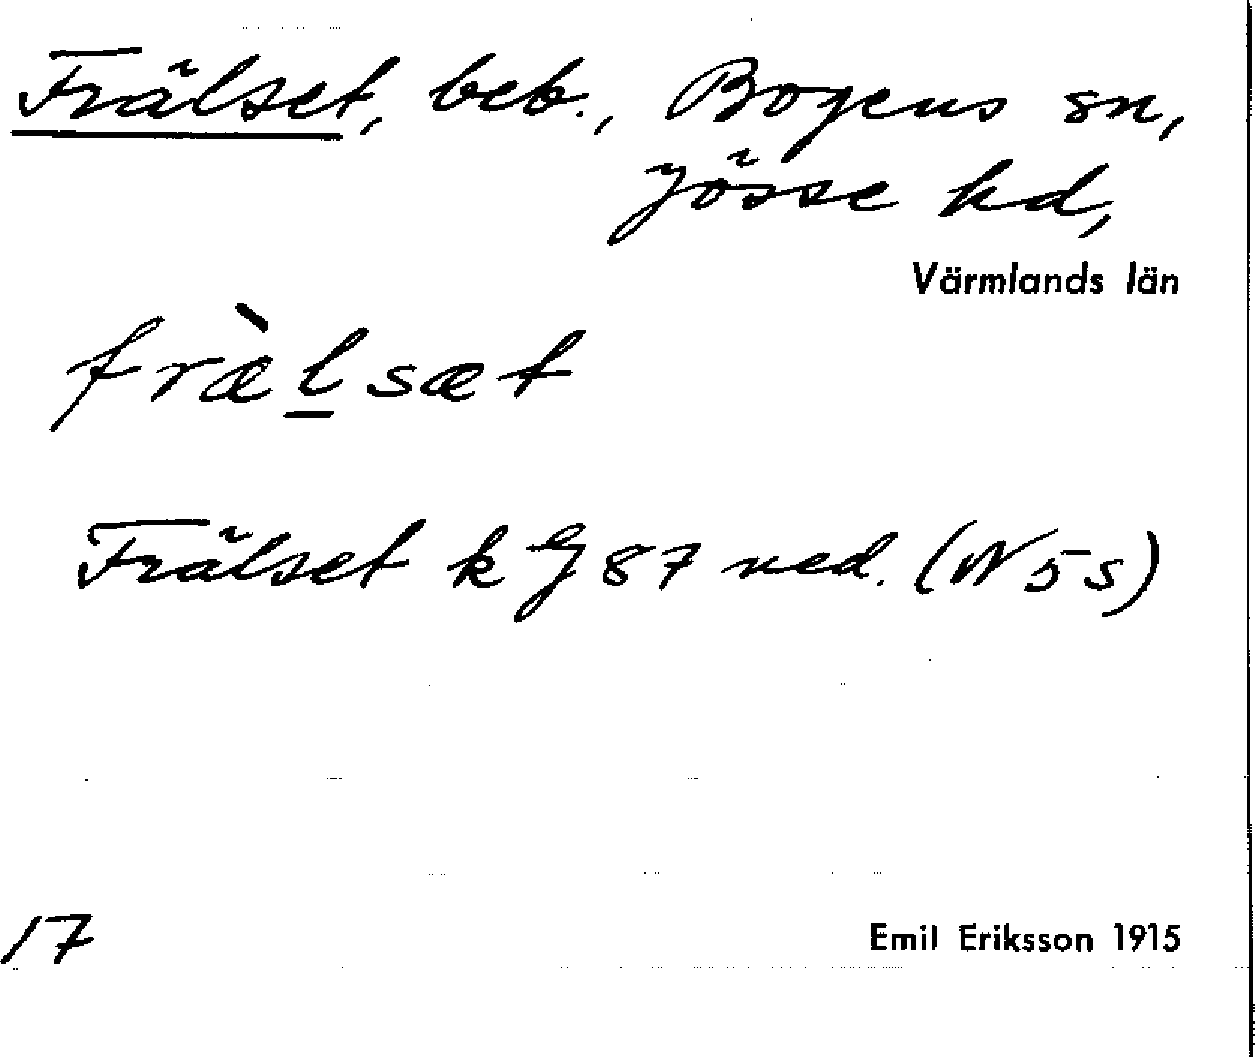 Frälset, beb., Bogens sn,
Jösse hd,
Värmlands län
fræ̀l̲sæt
Frälset k G 87 ned. (N 5 s)
17
Emil Eriksson 1915